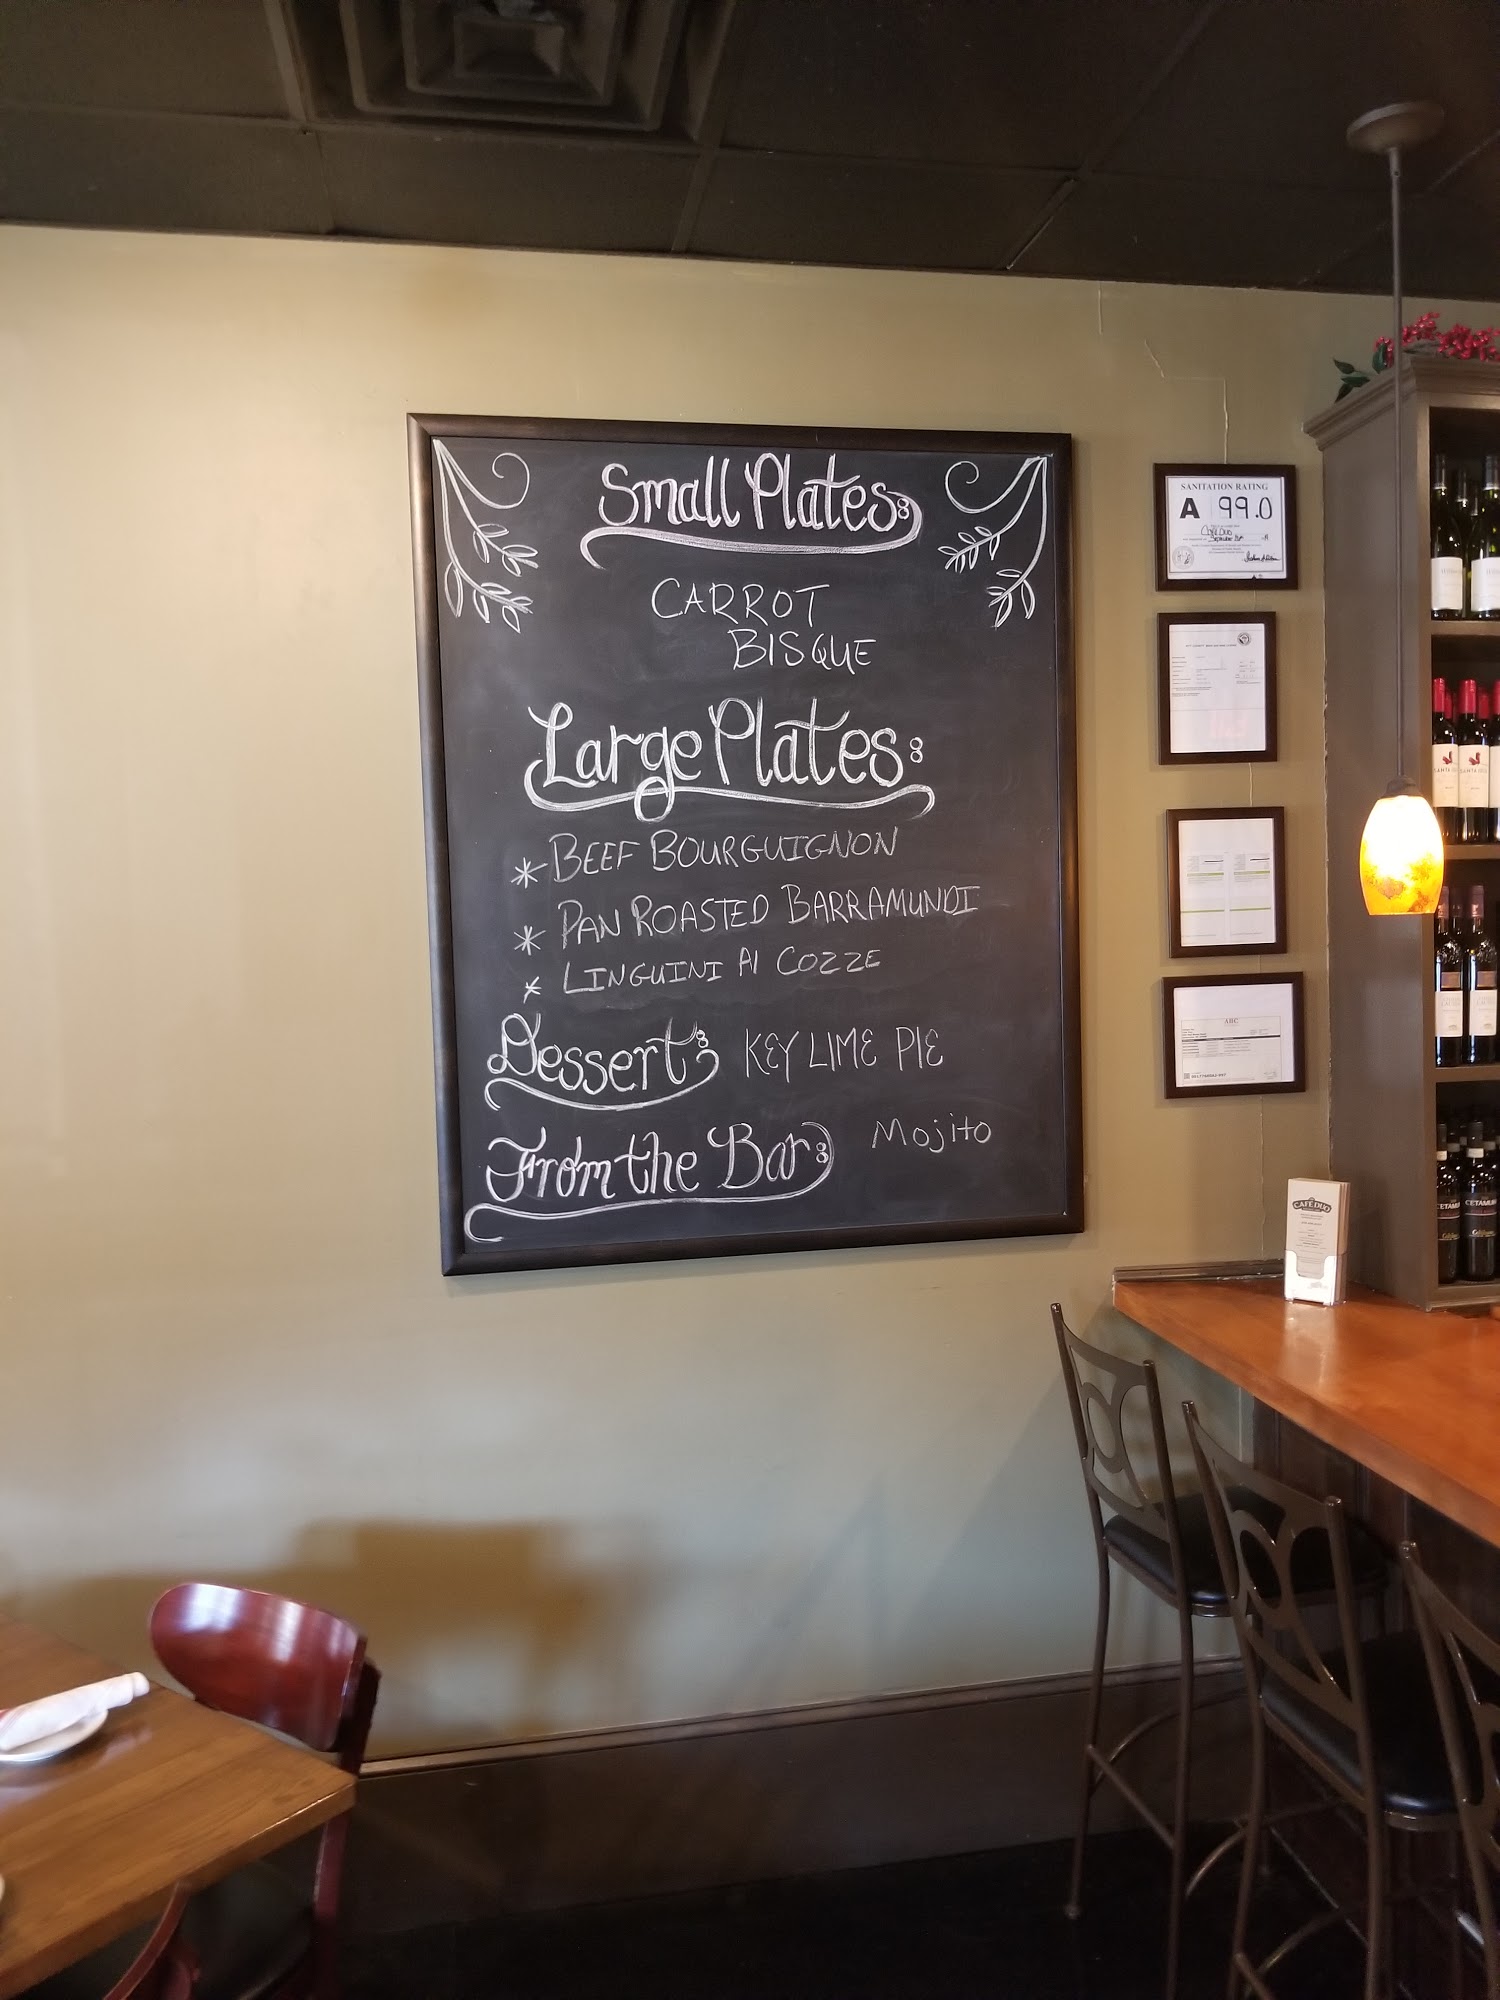 Small Plates:
CARROT
BISQUE
Large Plates:
* BEEF BOURGUIGNON
* PAN ROASTED BARRAMUNDI
* LINGUINI AI COZZE
Dessert: KEY LIME PIE
From the Bar: Mojito
SANITATION RATING
A 99.0
ABC
CAFÉ DUO
SANTA
SANTA
CETAMURA